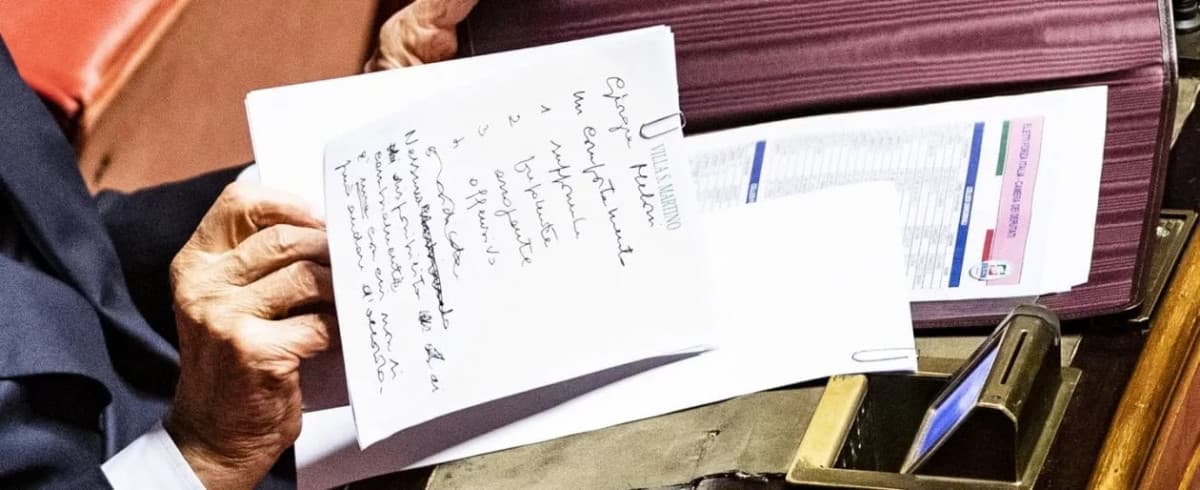 VILLA S. MARTINO
Giorgia Meloni
Un comportamento
1 supponente
2 prepotente
arrogante
3 offensivo
4
Nessuna
disponibilità ai
cambiamenti
è una con cui non si
può andar d'accordo.
ELETTI FORZA ITALIA - CAMERA DEI DEPUTATI